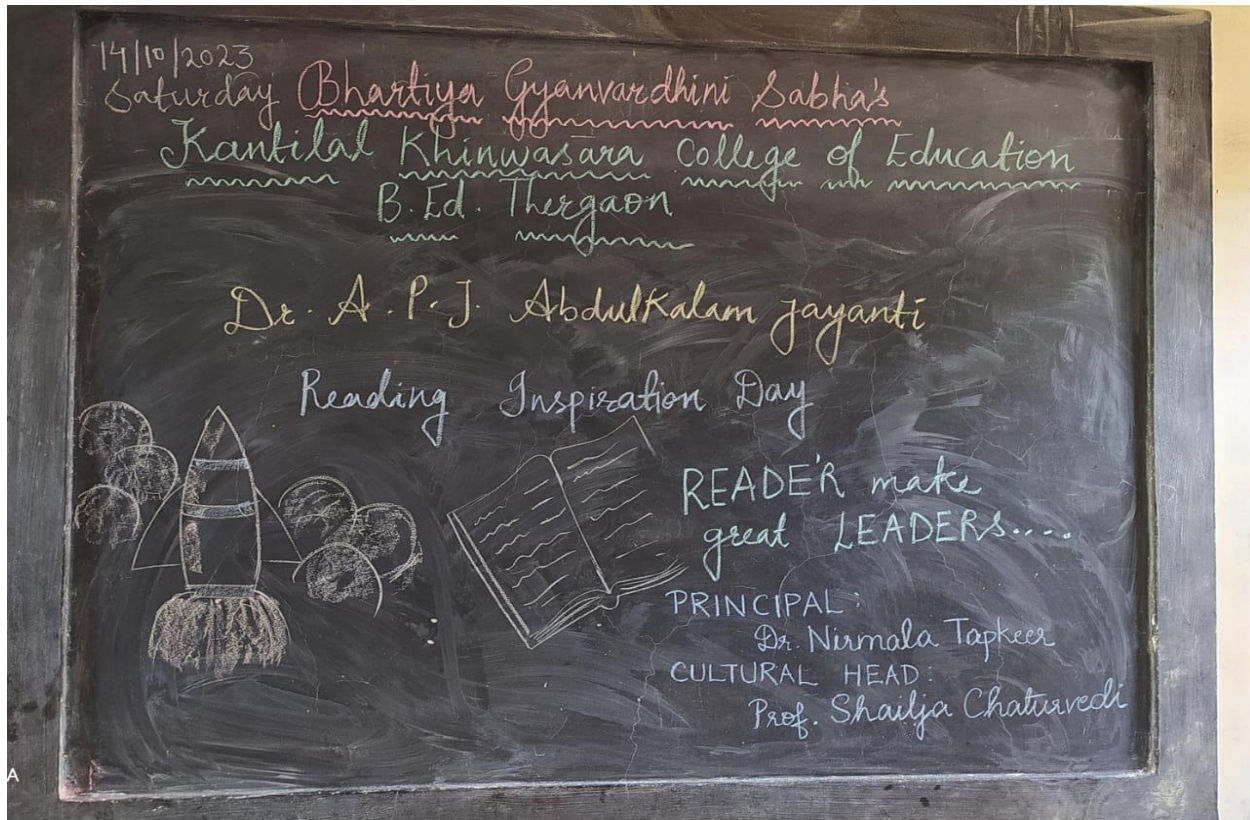 14/10/2023
Saturday Bhartiya Gyanvardhini Sabha's
Kantilal Khinwasara College of Education
B.Ed. Thergaon
Dr. A.P.J. Abdulkalam Jayanti
Reading Inspiration Day
READE'R make
great LEADERS....
PRINCIPAL:
Dr. Nirmala Tapkeer
CULTURAL HEAD:
Prof. Shailja Chaturvedi
A